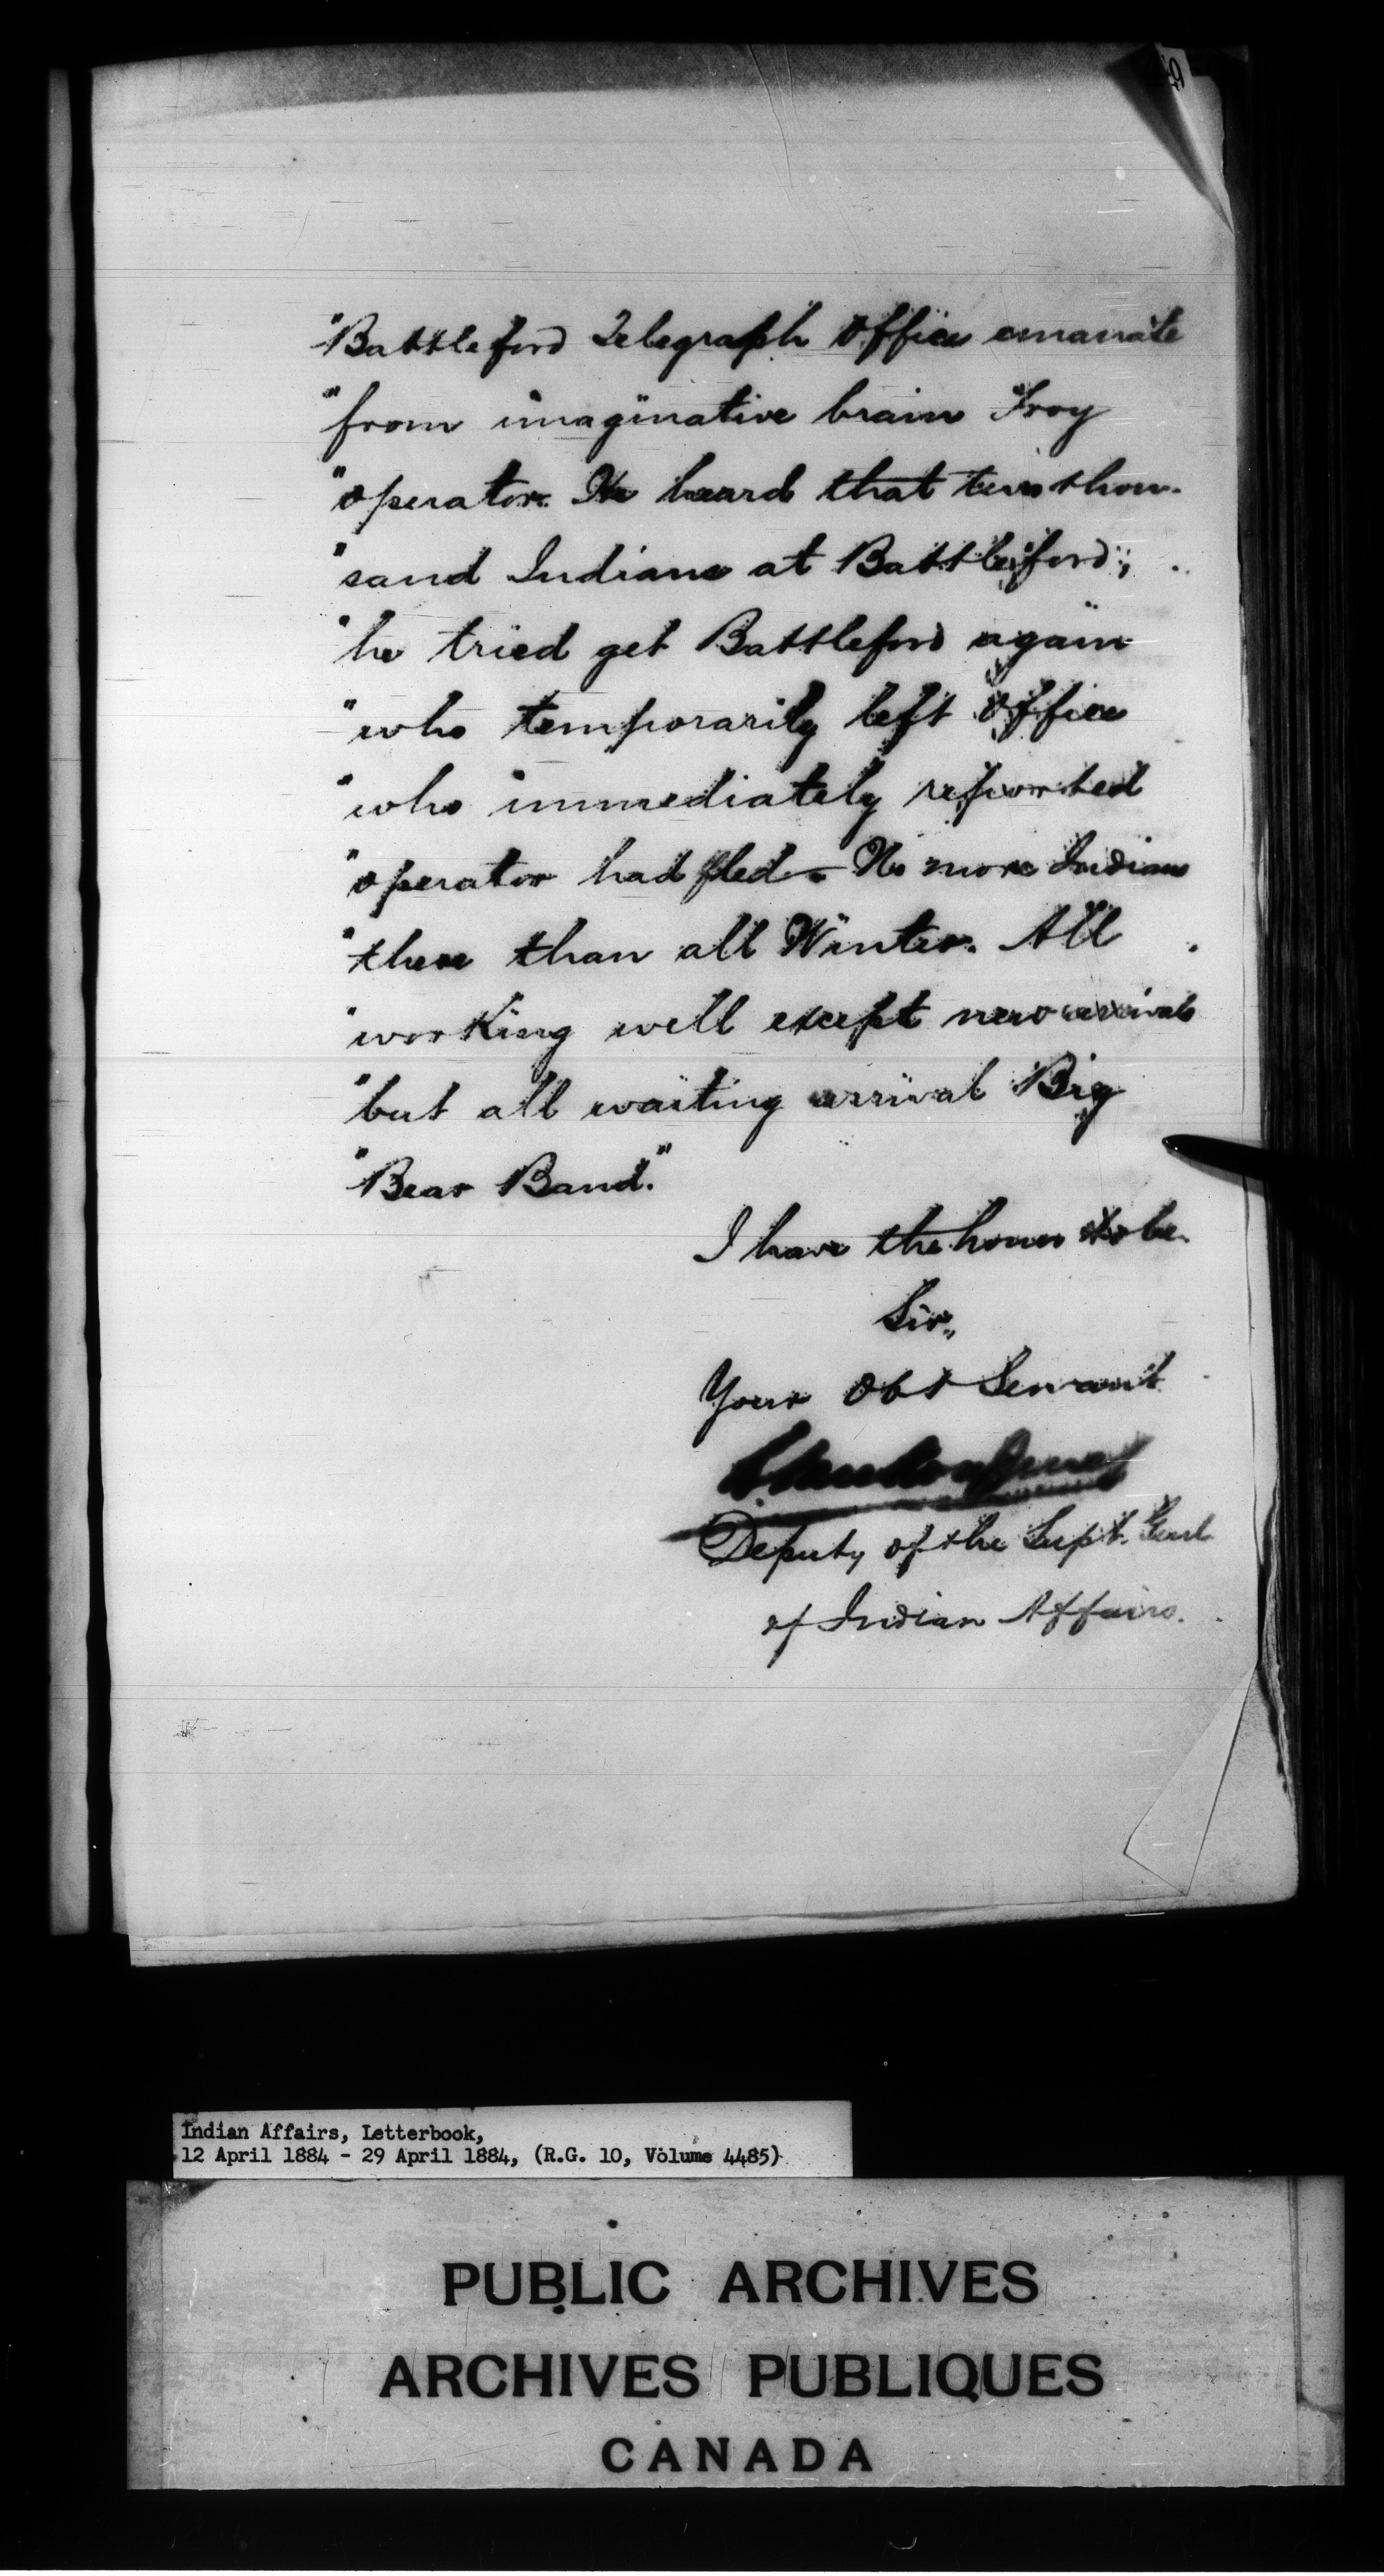 "Battleford Telegraph Office emanate
"from imaginative brain Troy
"operator. He heard that two thou-
"sand Indians at Battleford;
"he tried get Battleford again
"who temporarily left office
"who immediately reported
"operator had fled – No more Indians
"there than all Winter. All
"working well except new arrivals
"but all waiting arrival Big
"Bear Band."
I have the honor to be
Sir,
Your Obt Servant
Deputy of the Supt. Genl
of Indian Affairs.
Indian Affairs, Letterbook,
12 April 1884 - 29 April 1884, (R.G. 10, Volume 4485)
PUBLIC ARCHIVES
ARCHIVES PUBLIQUES
CANADA